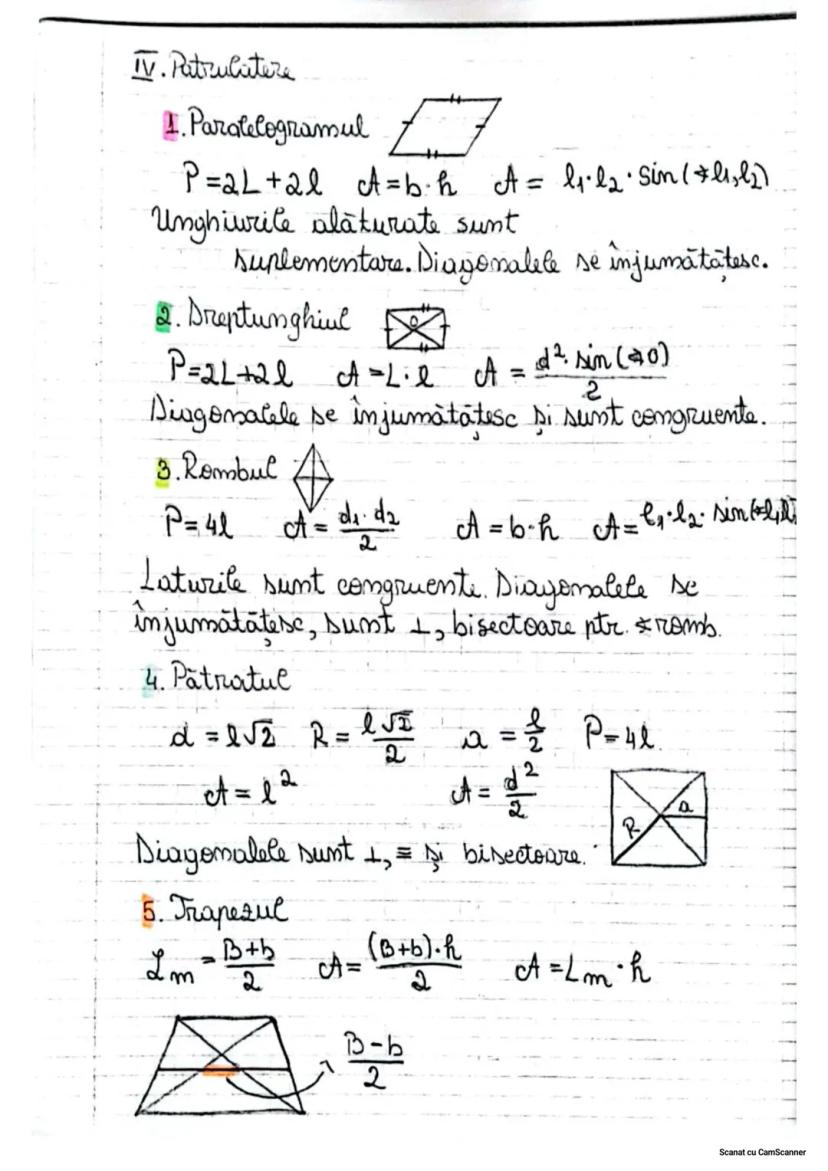 IV. Patrulatere
1. Paralelogramul
P=2L+2l A=b·h A= l₁·l₂·sin(∢l₁,l₂)
Unghiurile alăturate sunt
suplementare. Diagonalele se înjumătățesc.
2. Dreptunghiul O
P=2L+2l A=L·l A = d²·sin(∢O)/2
Diagonalele se înjumătățesc și sunt congruente.
3. Rombul
P=4l A=d₁·d₂/2 A=b·h A=l₁·l₂·sin(∢l₁l
Laturile sunt congruente. Diagonalele se
înjumătățesc, sunt ⊥, bisectoare ptr. ∢romb.
4. Pătratul
d=l√2 R=l√2/2 a=l/2 P=4l
A=l² A=d²/2
a
R
Diagonalele sunt ⊥, ≡ și bisectoare.
5. Trapezul
Lm=B+b/2 A=(B+b)·h/2 A=Lm·h
B-b/2
Scanat cu CamScanner